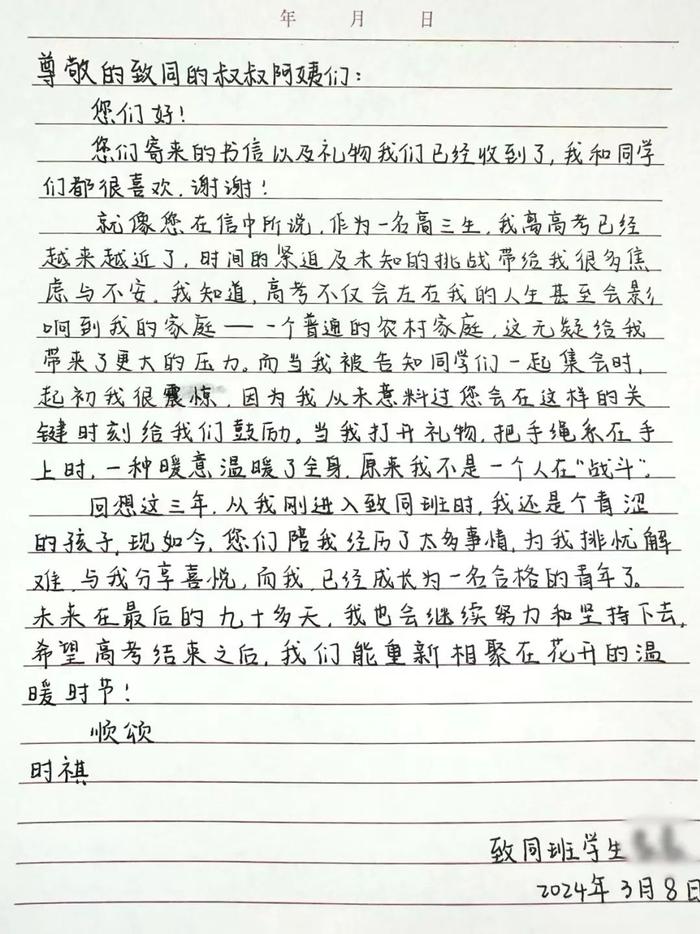 年 月 日
尊敬的致同的叔叔阿姨们：
您们好！
您们寄来的书信以及礼物我们已经收到了，我和同学
们都很喜欢，谢谢！
就像您在信中所说，作为一名高三生，我离高考已经
越来越近了，时间的紧迫及未知的挑战带给我很多焦
虑与不安。我知道，高考不仅会左右我的人生甚至会影
响到我的家庭——一个普通的农村家庭，这无疑给我
带来了更大的压力。而当我被告知同学们一起集会时，
起初我很震惊，因为我从未意料过您会在这样的关
键时刻给我们鼓励。当我打开礼物，把手绳系在手
上时，一种暖意温暖了全身，原来我不是一个人在“战斗”。
回想这三年，从我刚进入致同班时，我还是个青涩
的孩子，现如今，您们陪我经历了太多事情，为我排忧解
难，与我分享喜悦，而我，已经成长为一名合格的青年了。
未来在最后的九十多天，我也会继续努力和坚持下去，
希望高考结束之后，我们能重新相聚在花开的温
暖时节！
顺颂
时祺
致同班学生
2024年3月8日